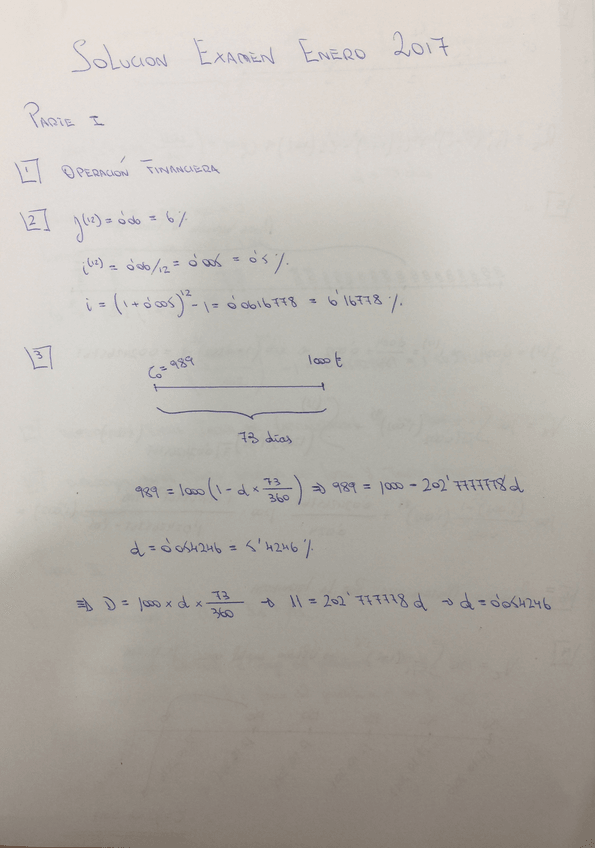 SOLUCION EXAMEN ENERO 2017
PARTE I
1 OPERACIÓN FINANCIERA
2 j(12) = 0'06 = 6%
i(12) = 0'06/12 = 0'005 = 0'5%.
i = (1 + 0'005)^12 - 1 = 0'0616778 = 6'16778%.
3
C0 = 989 1000 €
73 días
989 = 1000 (1 - d × 73/360) ⇒ 989 = 1000 - 202'7777778 d
d = 0'054246 = 5'4246%
⇒ D = 1000 × d × 73/360 → 11 = 202'777778 d → d = 0'054246